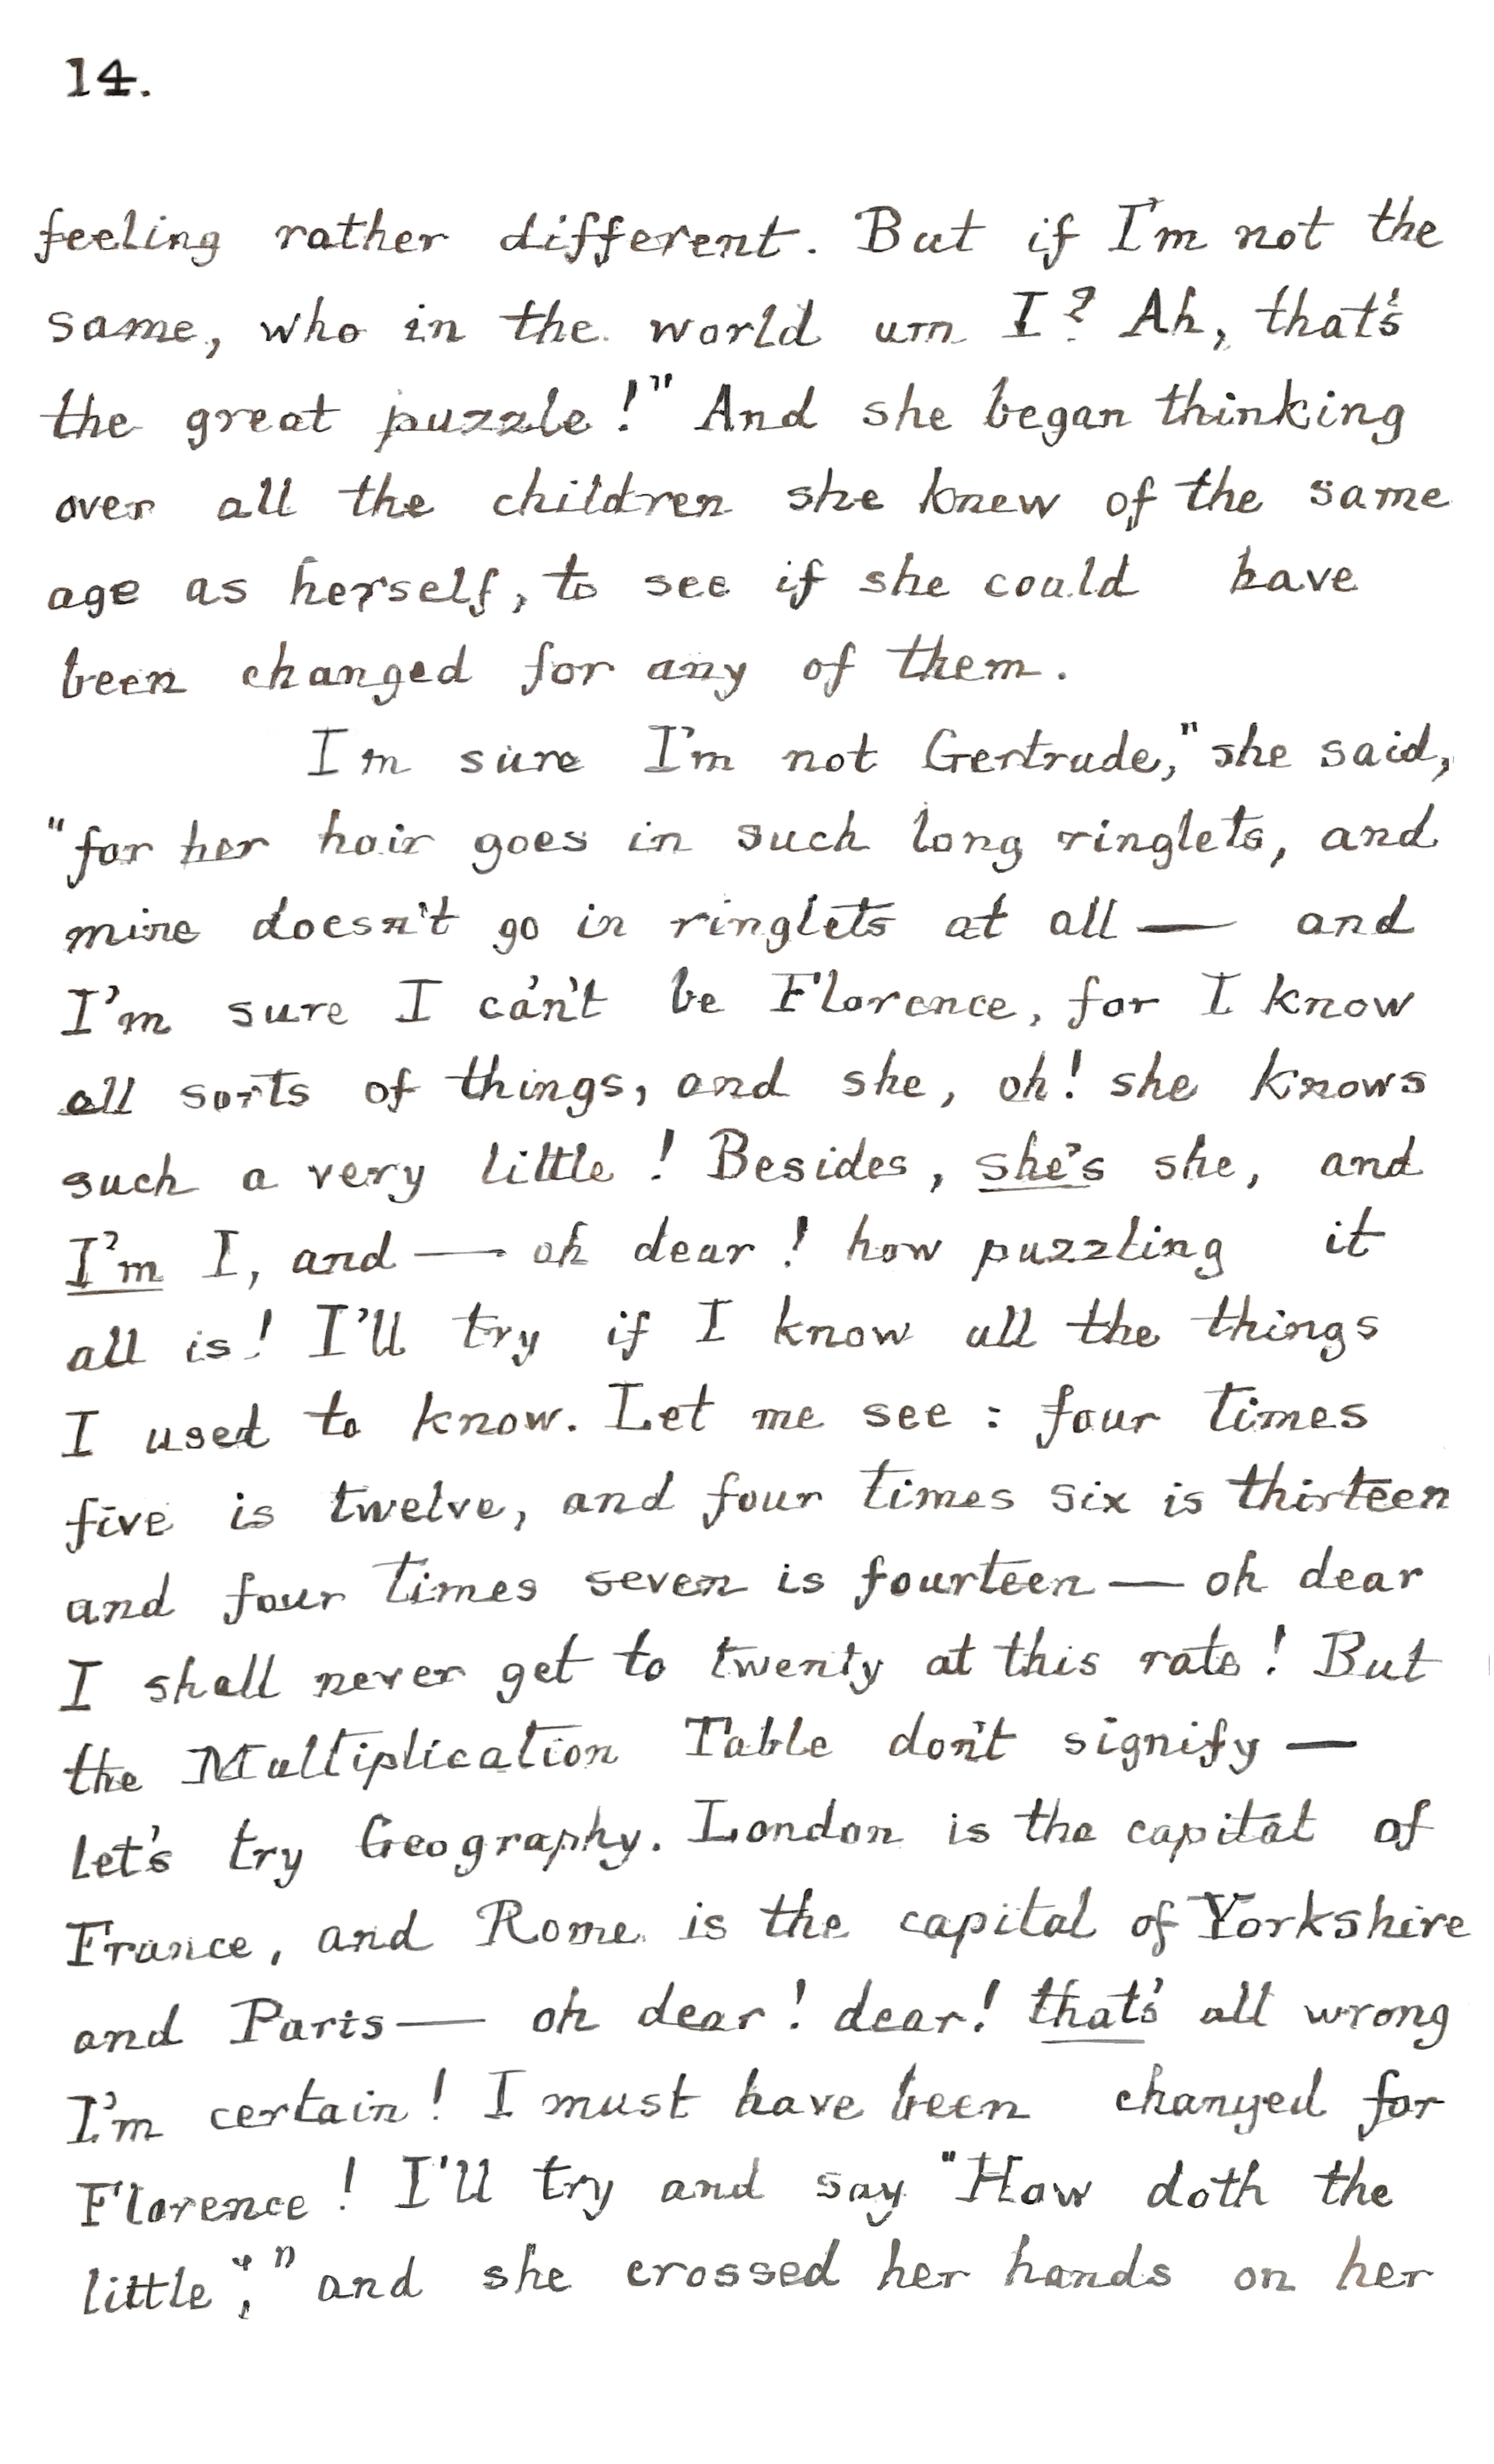 14.
feeling rather different. But if I'm not the
same, who in the world am I? Ah, that's
the great puzzle!" And she began thinking
over all the children she knew of the same
age as herself, to see if she could have
been changed for any of them.
Im sure I'm not Gertrude," she said,
"for her hair goes in such long ringlets, and
mine doesn't go in ringlets at all — and
I'm sure I ca'n't be Florence, for I know
all sorts of things, and she, oh! she knows
such a very little! Besides, she's she, and
I'm I, and — oh dear! how puzzling it
all is! I'll try if I know all the things
I used to know. Let me see: four times
five is twelve, and four times six is thirteen
and four times seven is fourteen — oh dear
I shall never get to twenty at this rate! But
the Multiplication Table don't signify —
let's try Geography. London is the capital of
France, and Rome is the capital of Yorkshire
and Paris — oh dear! dear! that's all wrong
I'm certain! I must have been changed for
Florence! I'll try and say "How doth the
little"," and she crossed her hands on her